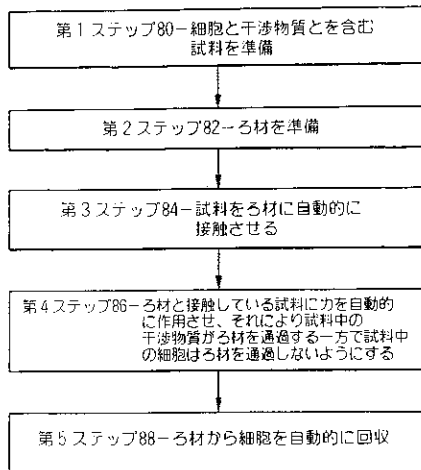 第1ステップ80－細胞と干渉物質とを含む
試料を準備
第2ステップ82－ろ材を準備
第3ステップ84－試料をろ材に自動的に
接触させる
第4ステップ86－ろ材と接触している試料に力を自動的
に作用させ、それにより試料中の
干渉物質がろ材を通過する一方で試料中
の細胞はろ材を通過しないようにする
第5ステップ88－ろ材から細胞を自動的に回収